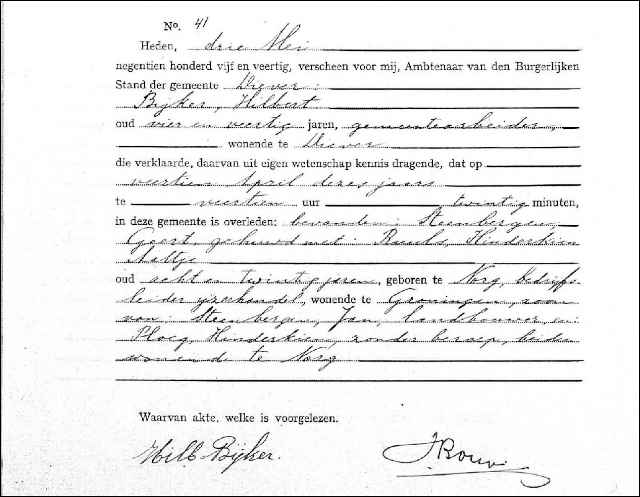 No. 41
Heden, drie Mei
negentien honderd vijf en veertig, verscheen voor mij, Ambtenaar van den Burgerlijken
Stand der gemeente Diever:
Bijker, Hilbert
oud vier en veertig jaren, gemeentearbeider,
wonende te Diever
die verklaarde, daarvan uit eigen wetenschap kennis dragende, dat op
veertien April dezes jaars
te veertien uur twintig minuten,
in deze gemeente is overleden: bevonden: Steenbergen,
Geert, gehuwd met: Hinderkien
Aaltje
oud acht en twintig jaren, geboren te Norg, bedrijfs
leider ijzerhandel, wonende te Groningen, zoon
van: Steenbergen, Jan, landbouwer, en:
Ploeg, Hinderkien, zonder beroep, beiden
wonende te Norg
Waarvan akte, welke is voorgelezen.
Hilb. Bijker.